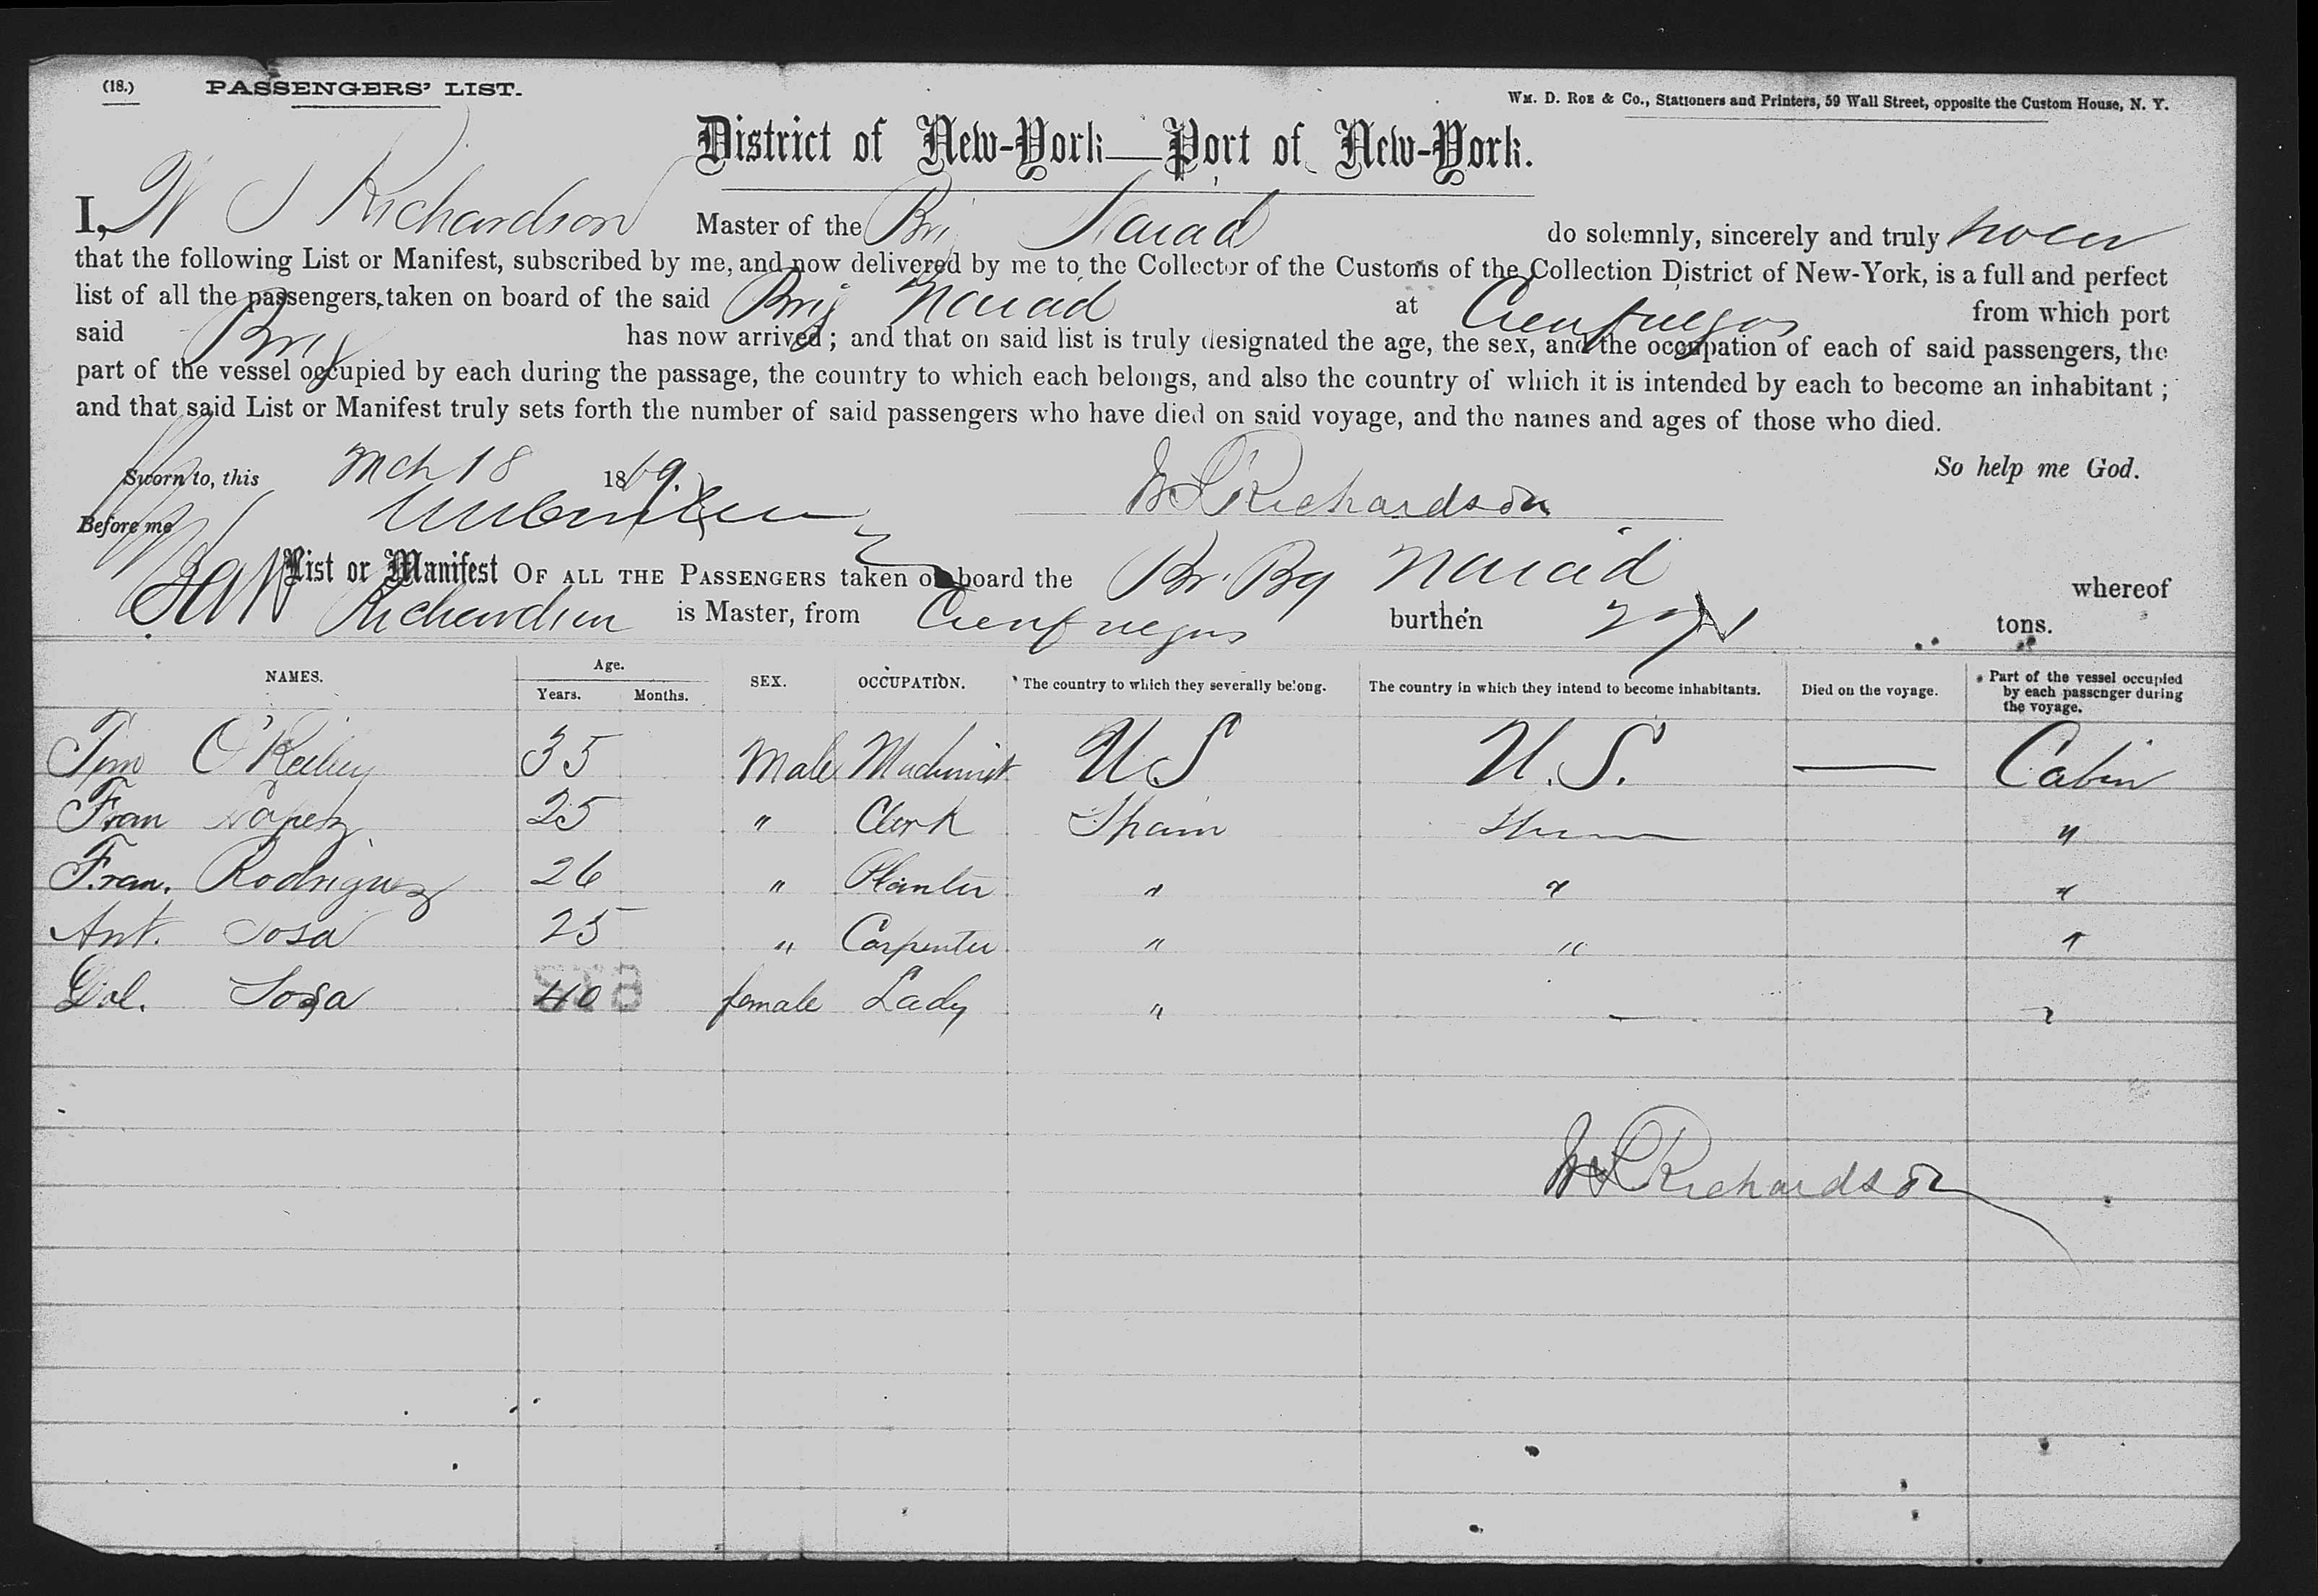 (18.) PASSENGERS' LIST.
Wm. D. Roe & Co., Stationers and Printers, 59 Wall Street, opposite the Custom House, N. Y.
District of New-York—Port of New-York.
I, W S Richardson Master of the Brig Naiad do solemnly, sincerely and truly swear
that the following List or Manifest, subscribed by me, and now delivered by me to the Collector of the Customs of the Collection District of New-York, is a full and perfect
list of all the passengers, taken on board of the said Brig Naiad at Cienfuegos from which port
said Brig has now arrived; and that on said list is truly designated the age, the sex, and the occupation of each of said passengers, the
part of the vessel occupied by each during the passage, the country to which each belongs, and also the country of which it is intended by each to become an inhabitant;
and that said List or Manifest truly sets forth the number of said passengers who have died on said voyage, and the names and ages of those who died.
So help me God.
Sworn to, this Mch 18 1869.
W S Richardson
Before me
List or Manifest OF ALL THE PASSENGERS taken on board the Br. Bg Naiad whereof
Richardson is Master, from Cienfuegos burthen tons.
NAMES. Age. Years. Months. SEX. OCCUPATION. The country to which they severally belong. The country in which they intend to become inhabitants. Died on the voyage. Part of the vessel occupied by each passenger during the voyage.
Tim 35 Male Machinist U S U. S. — Cabin
Fran Lopez 25 " Clerk Spain "
Fran. Rodriguez 26 " Planter " " "
Ant. Sosa 25 " Carpenter " " "
Sosa 40 female Lady " "
W S Richardson